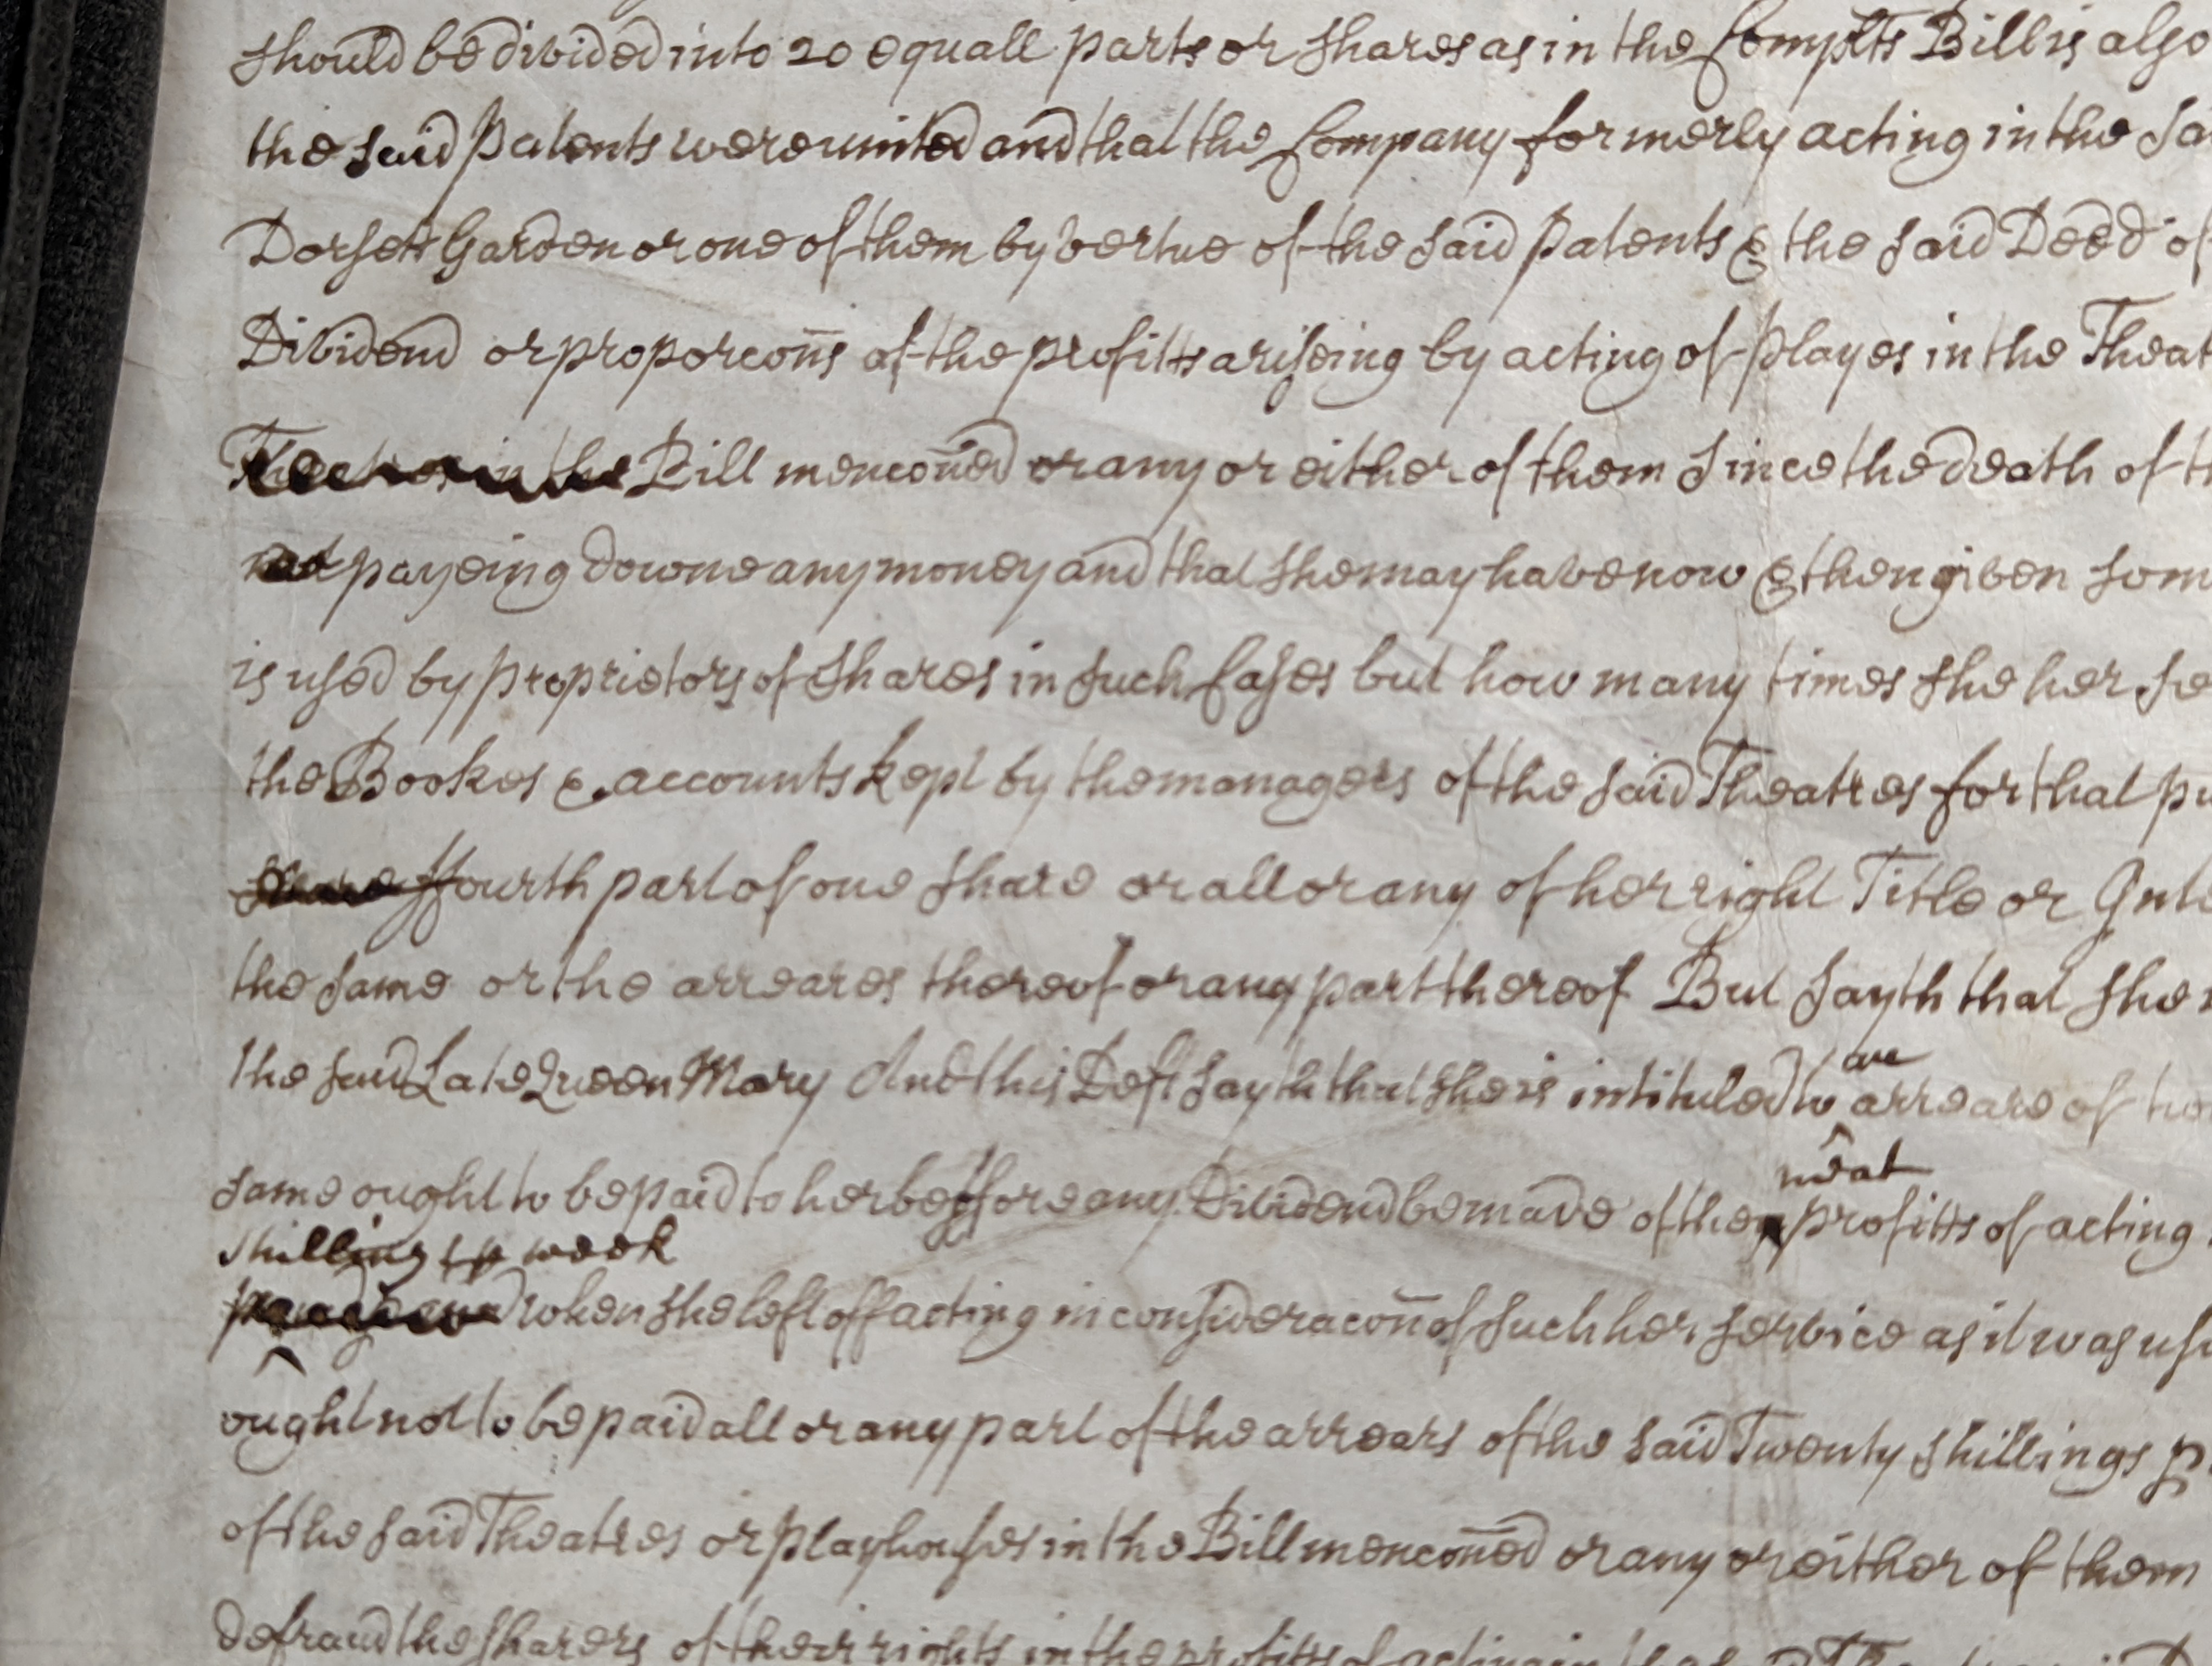 should be divided into 20 equall parts or shares as in the Complts Bill is also
the said Patents were united and that the Company formerly acting in the
Dorsett Garden or one of them by vertue of the said Patents & the said Deed of
Dividend or proporcōns of the profitts ariseing by acting of Playes in the
in the Bill mencōned or any or either of them Since the death of
not payeing downe any money and that she may have now & then given
is used by proprietors of Shares in such Cases but how many times she her
the Bookes & accounts kept by the managers of the said Theatres for that
share ffourth part of one share or all or any of her right Title or
the same or the arreares thereof or any part thereof But Sayth that she
the said Late Queen Mary And this Deft Sayth that she is intituled to arreare of
an
same ought to be paid to her beffore any Dividend be made of the profitts of acting
neat
shilling p week
when she left off acting in consideracōn of such her service as it was
ought not to be paid all or any part of the arrears of the said Twenty shillings p
of the said Theatres or playhouses in the Bill mencōned or any or either of them
defraud the sharers of their rights in the profitts of acting in